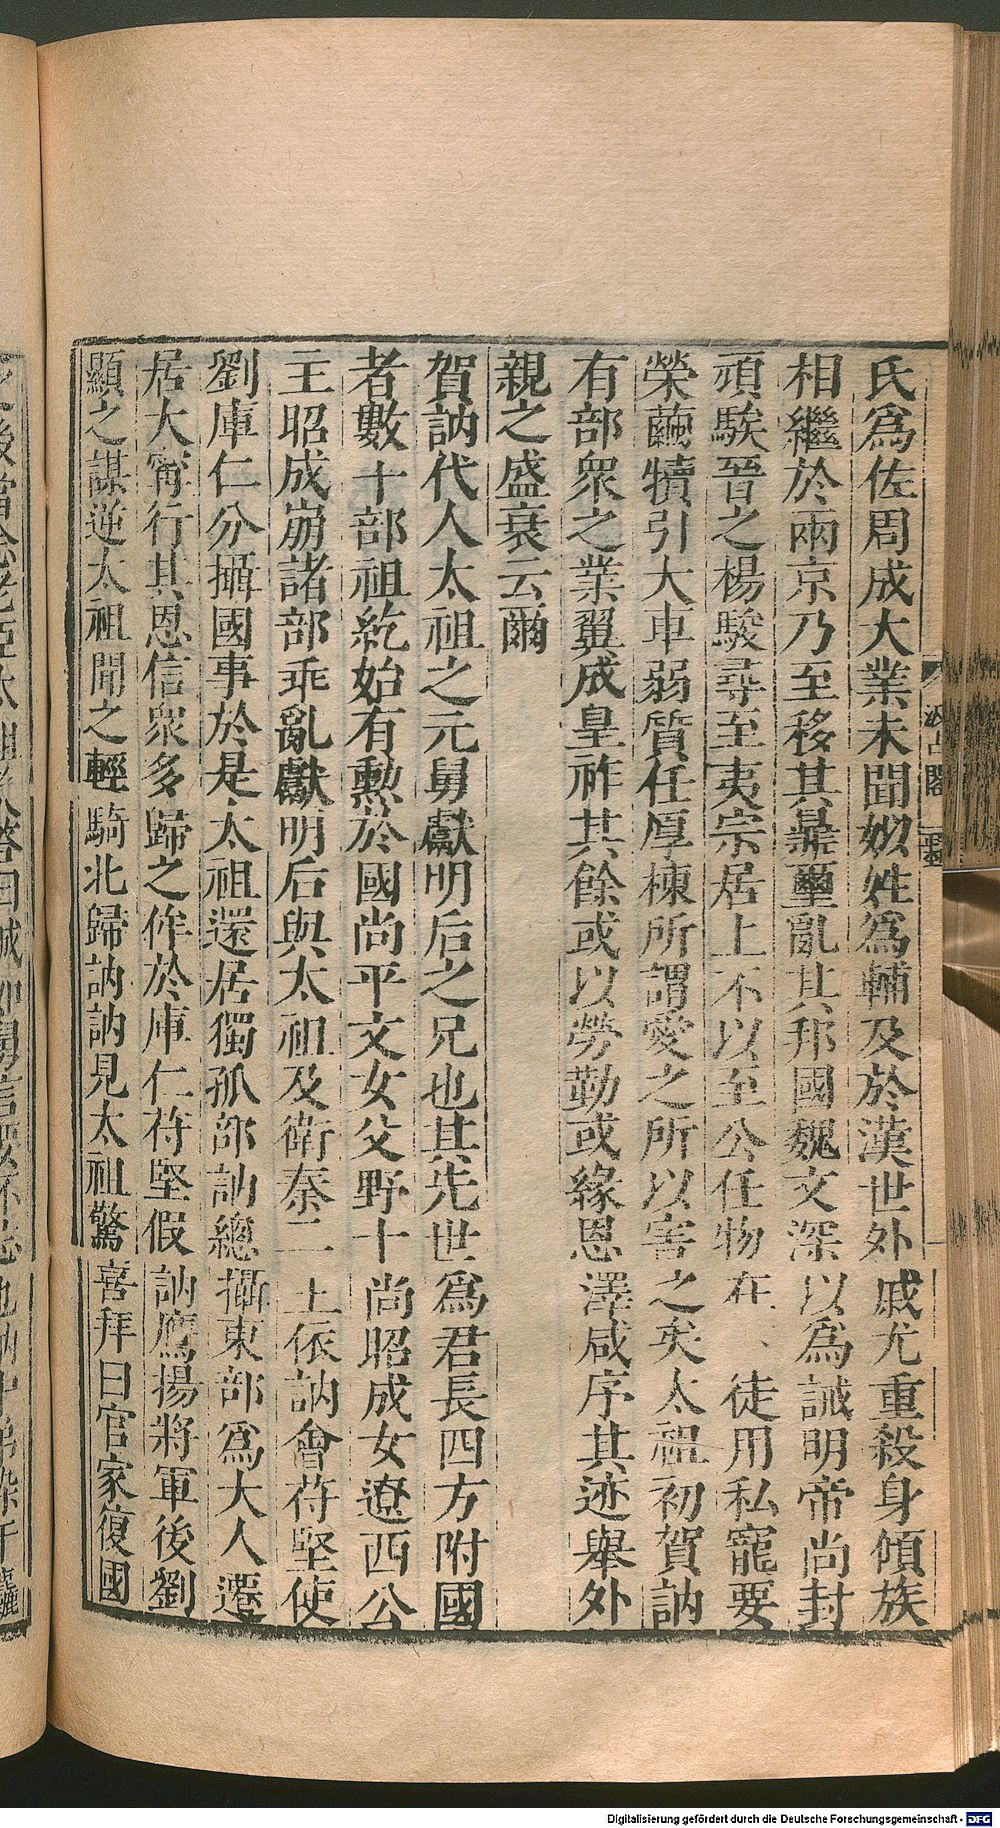 氏爲佐周成大業未聞姒姓爲輔及於漢世外戚尤重殺身傾族
相繼於兩京乃至移其鼎璽亂其邦國魏文深以爲誡明帝尚封
頑騃晉之楊駿尋至夷宗居上不以至公任物在徒用私寵要
榮繭犢引大車弱質任厚棟所謂愛之所以害之矣太祖初賀訥
有部衆之業翼成皇祚其餘或以勞勤或緣恩澤咸序其迹舉外
親之盛衰云爾
賀訥代人太祖之元舅獻明后之兄也其先世爲君長四方附國
者數十部祖紇始有勲於國尚平文女父野十尚昭成女遼西公
主昭成崩諸部乖亂獻明后與太祖及衛秦二土依訥會苻堅使
劉庫仁分攝國事於是太祖還居獨孤部訥總攝東部爲大人遷
居大甯行其恩信衆多歸之侔於庫仁苻堅假訥鷹揚將軍後劉
顯之謀逆太祖聞之輕騎北歸訥訥見太祖驚喜拜曰官家復國
Digitalisierung gefördert durch die Deutsche Forschungsgemeinschaft - DFG